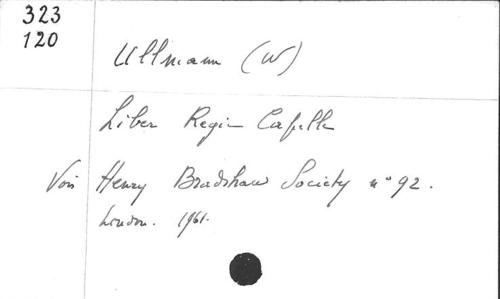 323
120
Ullmann (W)
Liber Regie Capelle
Voir Henry Bradshaw Society n° 92.
London. 1961.